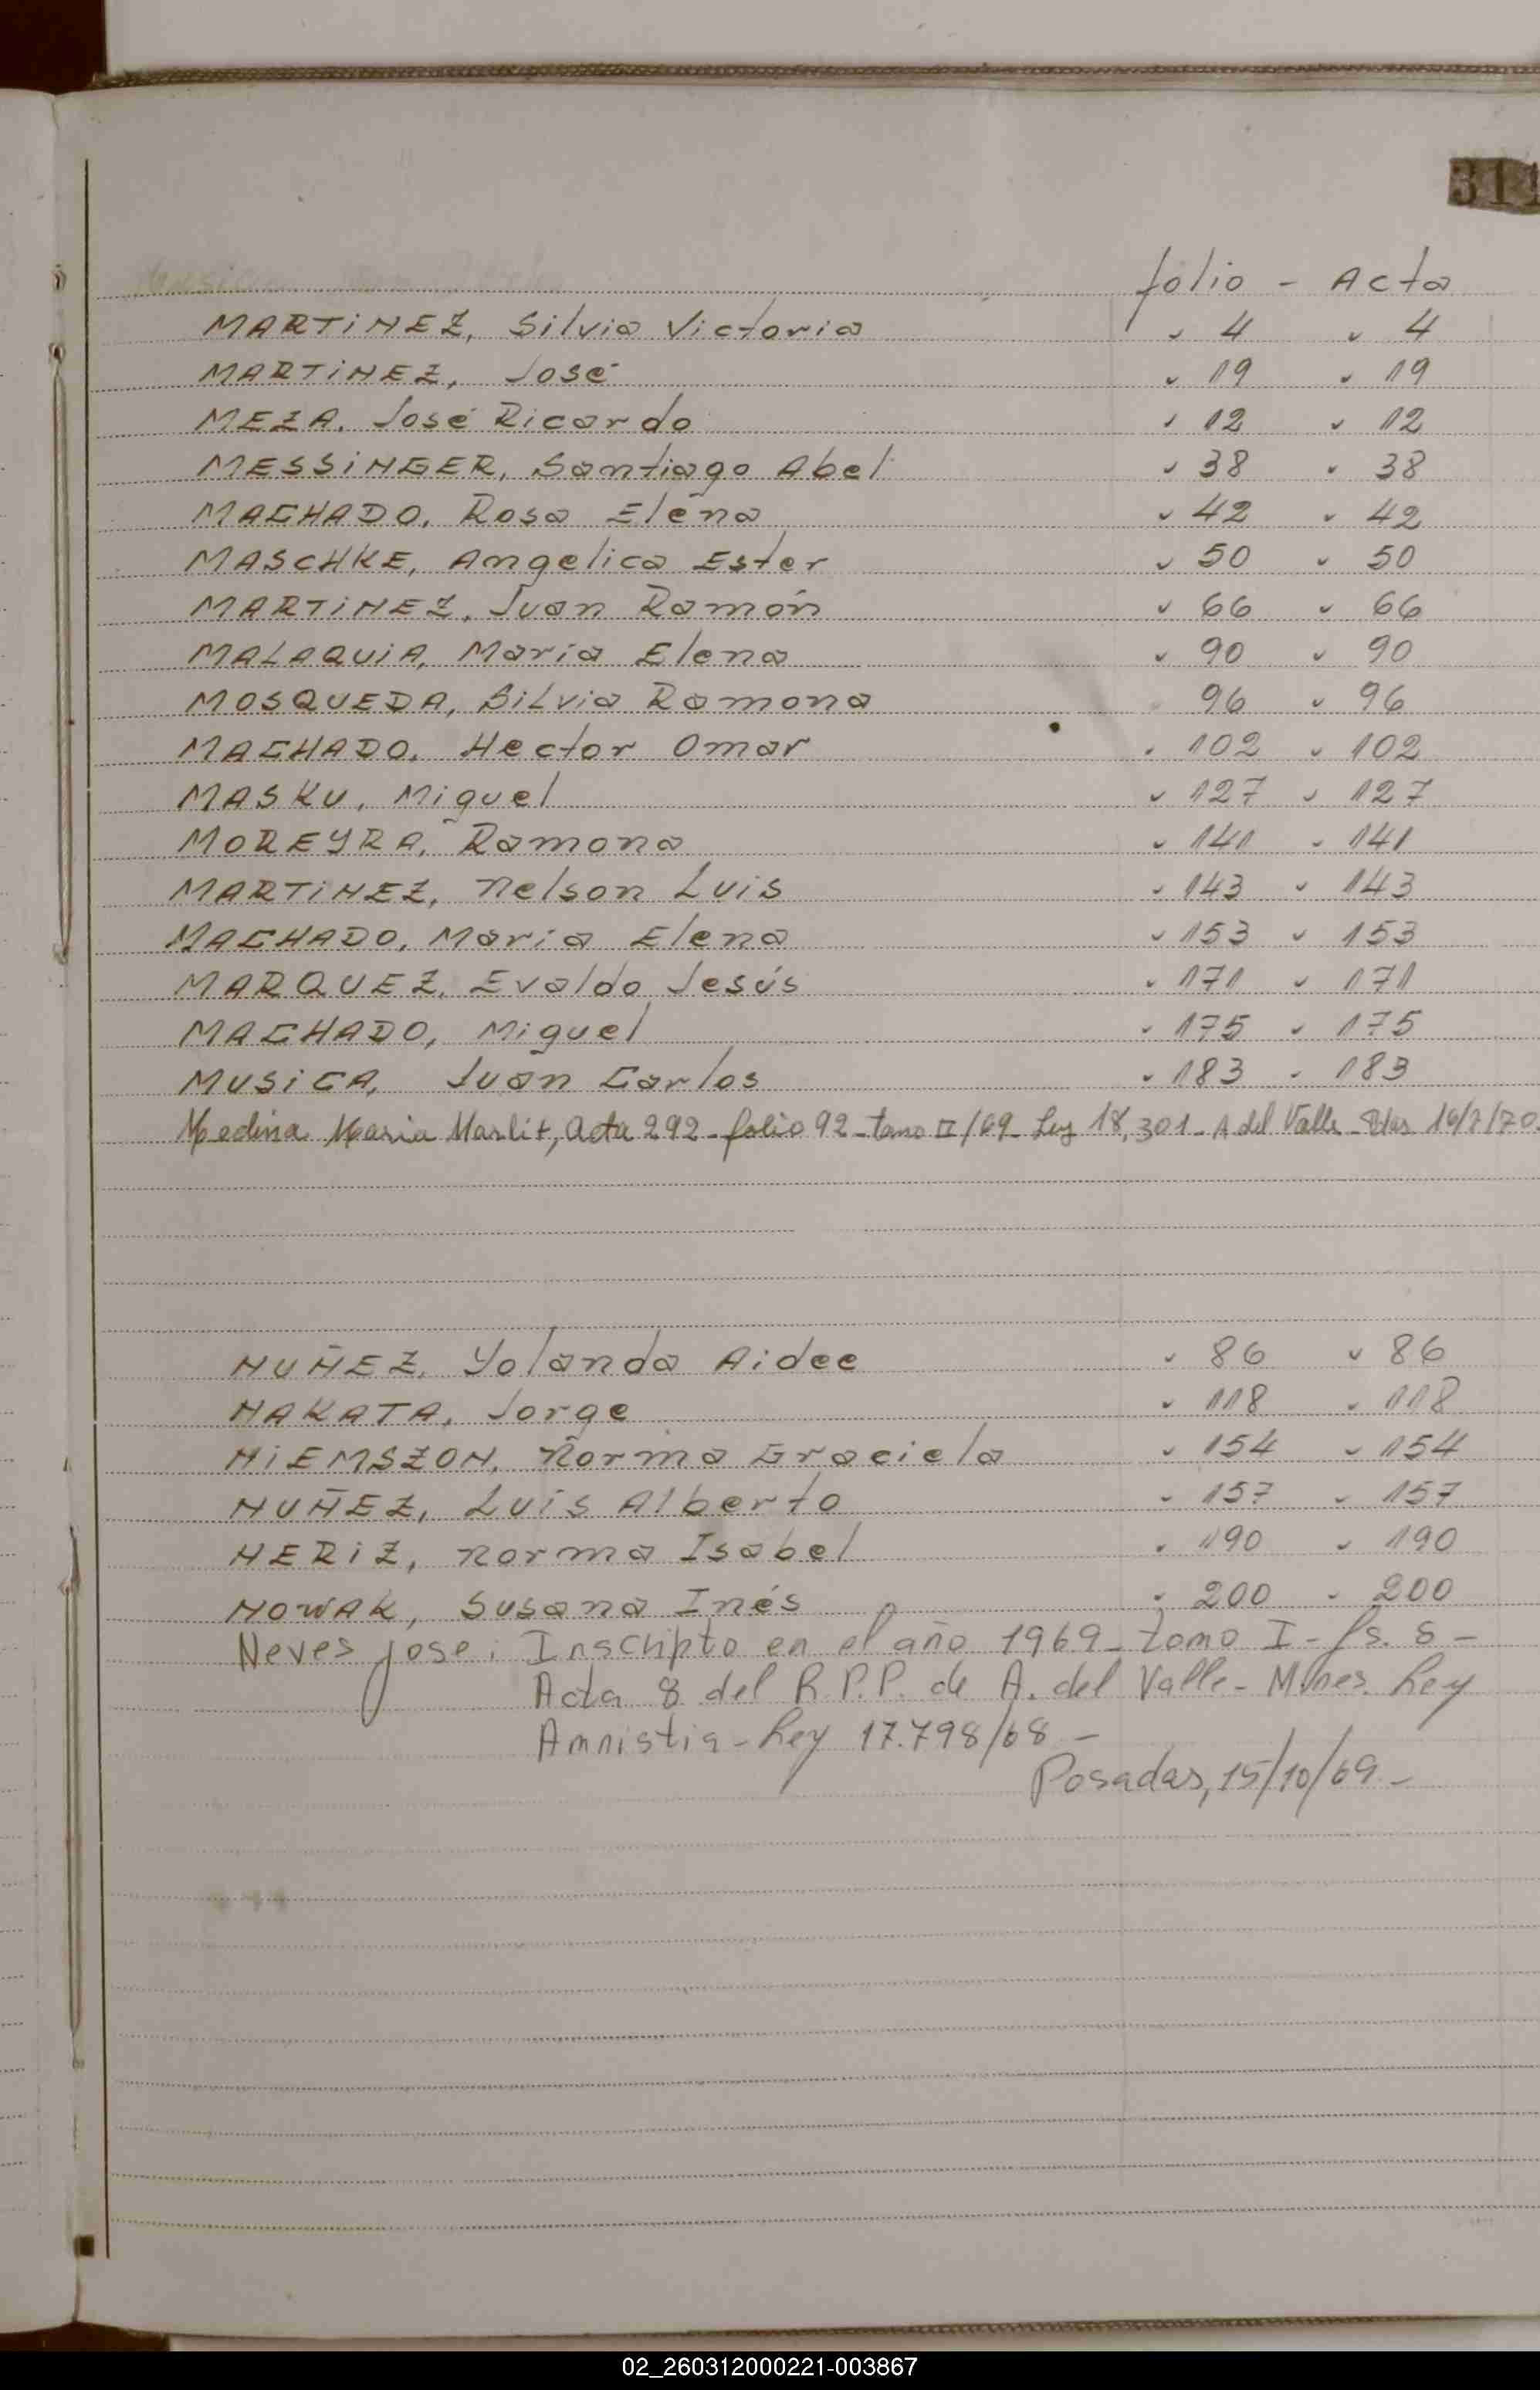 311
folio - Acta
MARTINEZ, Silvia Victoria " 4 " 4
MARTINEZ, José " 19 " 19
MEZA, José Ricardo " 12 " 12
MESSINGER, Santiago Abel " 38 " 38
MACHADO, Rosa Elena " 42 " 42
MASCHKE, Angelica Ester " 50 " 50
MARTINEZ, Juan Ramón " 66 " 66
MALAQUIA, Maria Elena " 90 " 90
MOSQUEDA, Silvia Ramona 96 " 96
MACHADO, Hector Omar " 102 " 102
MASKU, Miguel " 127 " 127
MOREYRA, Ramona " 141 " 141
MARTINEZ, Nelson Luis " 143 " 143
MACHADO, Maria Elena " 153 " 153
MARQUEZ, Evaldo Jesús " 171 " 171
MACHADO, Miguel " 175 " 175
MUSICA, Juan Carlos " 183 " 183
Medina Maria Marlit, Acta 292 - folio 92 - tomo II/69 - Ley 18,301 - A del Valle - Pdas 16/7/70.
NUÑEZ, Yolanda Aidee " 86 " 86
NAKATA, Jorge " 118 " 118
NIEMSZON, Norma Graciela " 154 " 154
NUÑEZ, Luis Alberto " 157 " 157
NERIZ, Norma Isabel " 190 " 190
NOWAK, Susana Inés " 200 " 200
Neves Jose: Inscripto en el año 1969 - tomo I - fs. 8 -
Acta 8 del R.P.P. de A. del Valle - Mnes. Ley
Amnistia - Ley 17.798/68 -
Posadas, 15/10/69 -
02_260312000221-003867